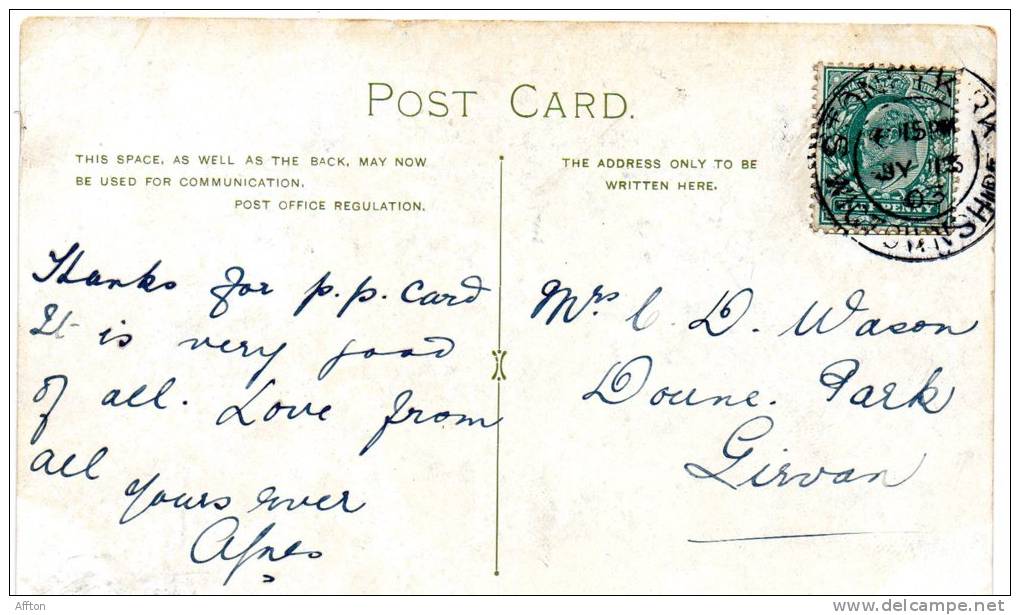 POST CARD.
THIS SPACE, AS WELL AS THE BACK, MAY NOW
BE USED FOR COMMUNICATION.
POST OFFICE REGULATION.
THE ADDRESS ONLY TO BE
WRITTEN HERE.
Thanks for p.p. card
It is very good
of all. Love from
all
yours ever
Agnes
Mrs C. D. Wason
Doune. Park
Girvan
JY 13
Affton
delcampe.net